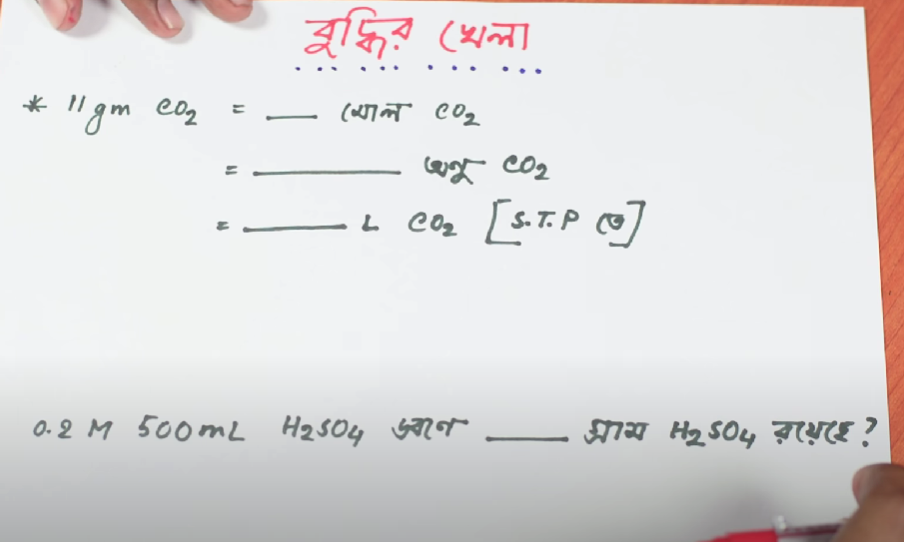 বুদ্ধির খেলা
* 11gm CO2 = ___ মোল CO2
= ___ অনু CO2
= ___ L CO2 [S.T.P তে]
0.2 M 500mL H2SO4 দ্রবণে ___ গ্রাম H2SO4 রয়েছে?